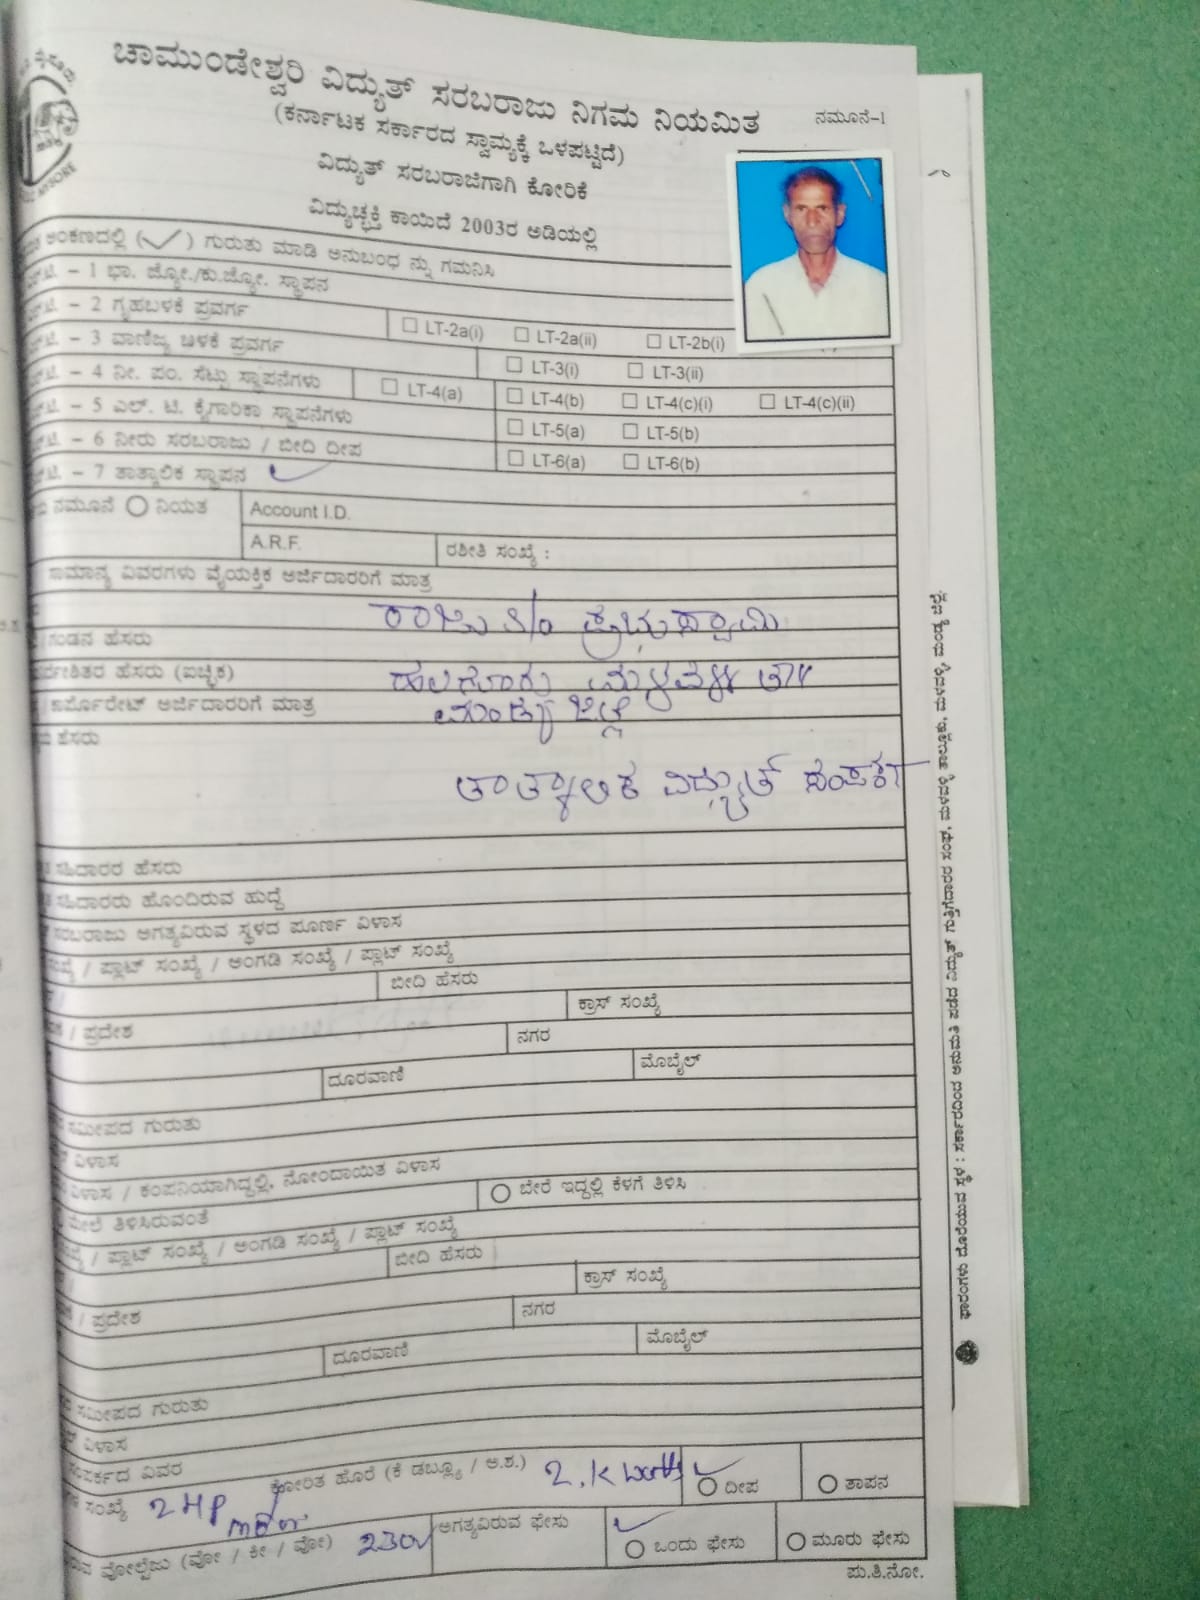 ಚಾಮುಂಡೇಶ್ವರಿ ವಿದ್ಯುತ್ ಸರಬರಾಜು ನಿಗಮ ನಿಯಮಿತ
ನಮೂನೆ-1
(ಕರ್ನಾಟಕ ಸರ್ಕಾರದ ಸ್ವಾಮ್ಯಕ್ಕೆ ಒಳಪಟ್ಟಿದೆ)
ವಿದ್ಯುತ್ ಸರಬರಾಜಿಗಾಗಿ ಕೋರಿಕೆ
ವಿದ್ಯುಚ್ಛಕ್ತಿ ಕಾಯಿದೆ 2003ರ ಅಡಿಯಲ್ಲಿ
ಅಂಕಣದಲ್ಲಿ (✓) ಗುರುತು ಮಾಡಿ ಅನುಬಂಧ ನ್ನು ಗಮನಿಸಿ
- 1 ಭಾ. ಜ್ಯೋ./ಕು.ಜ್ಯೋ. ಸ್ಥಾಪನ
- 2 ಗೃಹಬಳಕೆ ಪ್ರವರ್ಗ ☐ LT-2a(i) ☐ LT-2a(ii) ☐ LT-2b(i)
- 3 ವಾಣಿಜ್ಯ ಬಳಕೆ ಪ್ರವರ್ಗ ☐ LT-3(i) ☐ LT-3(ii)
- 4 ನೀ. ಪಂ. ಸೆಟ್ಟು ಸ್ಥಾಪನೆಗಳು ☐ LT-4(a) ☐ LT-4(b) ☐ LT-4(c)(i) ☐ LT-4(c)(ii)
- 5 ಎಲ್. ಟಿ. ಕೈಗಾರಿಕಾ ಸ್ಥಾಪನೆಗಳು ☐ LT-5(a) ☐ LT-5(b)
- 6 ನೀರು ಸರಬರಾಜು / ಬೀದಿ ದೀಪ ☐ LT-6(a) ☐ LT-6(b)
- 7 ತಾತ್ಕಾಲಿಕ ಸ್ಥಾಪನ ✓
ನಮೂನೆ ○ ನಿಯತ Account I.D.
A.R.F. ರಶೀತಿ ಸಂಖ್ಯೆ :
ಸಾಮಾನ್ಯ ವಿವರಗಳು ವೈಯಕ್ತಿಕ ಅರ್ಜಿದಾರರಿಗೆ ಮಾತ್ರ
ರಾಜು S/o ಪ್ರಭುಸ್ವಾಮಿ
ಗಂಡನ ಹೆಸರು
ಹೆಸರು (ಐಚ್ಛಿಕ)
ಕಾರ್ಪೊರೇಟ್ ಅರ್ಜಿದಾರರಿಗೆ ಮಾತ್ರ ಮಂಡ್ಯ ಜಿಲ್ಲೆ
ಹೆಸರು
ತಾತ್ಕಾಲಿಕ ವಿದ್ಯುತ್ ಸಂಪರ್ಕ
ಸಹಿದಾರರ ಹೆಸರು
ಸಹಿದಾರರು ಹೊಂದಿರುವ ಹುದ್ದೆ
ಸರಬರಾಜು ಅಗತ್ಯವಿರುವ ಸ್ಥಳದ ಪೂರ್ಣ ವಿಳಾಸ
/ ಪ್ಲಾಟ್ ಸಂಖ್ಯೆ / ಅಂಗಡಿ ಸಂಖ್ಯೆ / ಪ್ಲಾಟ್ ಸಂಖ್ಯೆ
ಬೀದಿ ಹೆಸರು
ಕ್ರಾಸ್ ಸಂಖ್ಯೆ
/ ಪ್ರದೇಶ ನಗರ
ದೂರವಾಣಿ ಮೊಬೈಲ್
ಸಮೀಪದ ಗುರುತು
ವಿಳಾಸ
ವಿಳಾಸ / ಕಂಪನಿಯಾಗಿದ್ದಲ್ಲಿ, ನೋಂದಾಯಿತ ವಿಳಾಸ
ಮೇಲೆ ತಿಳಿಸಿರುವಂತೆ ○ ಬೇರೆ ಇದ್ದಲ್ಲಿ ಕೆಳಗೆ ತಿಳಿಸಿ
/ ಪ್ಲಾಟ್ ಸಂಖ್ಯೆ / ಅಂಗಡಿ ಸಂಖ್ಯೆ / ಪ್ಲಾಟ್ ಸಂಖ್ಯೆ
ಬೀದಿ ಹೆಸರು
ಕ್ರಾಸ್ ಸಂಖ್ಯೆ
/ ಪ್ರದೇಶ ನಗರ
ದೂರವಾಣಿ ಮೊಬೈಲ್
ಸಮೀಪದ ಗುರುತು
ವಿಳಾಸ
ವಿವರ
ಸಂಖ್ಯೆ 2 HP motor ಕೋರಿತ ಹೊರೆ (ಕೆ ಡಬ್ಲ್ಯೂ / ಅ.ಶ.) 2.K watts ✓ ○ ದೀಪ ○ ತಾಪನ
ವೋಲ್ಟೇಜು (ವೋ / ಕೀ / ವೋ) 230V ಅಗತ್ಯವಿರುವ ಫೇಸು ✓ ○ ಒಂದು ಫೇಸು ○ ಮೂರು ಫೇಸು
ಪು.ತಿ.ನೋ.
ಫಾರಂಗಳು ದೊರೆಯುವ ಸ್ಥಳ : ಸರ್ಕಾರದಿಂದ ಅನುಮತಿ ಪಡೆದ ವಿದ್ಯುತ್ ಗುತ್ತಿಗೆದಾರರ ಸಂಘ, ಮಳವಳ್ಳಿ ತಾಲ್ಲೂಕು, ಮಳವಳ್ಳಿ, ಮಂಡ್ಯ ಜಿಲ್ಲೆ.